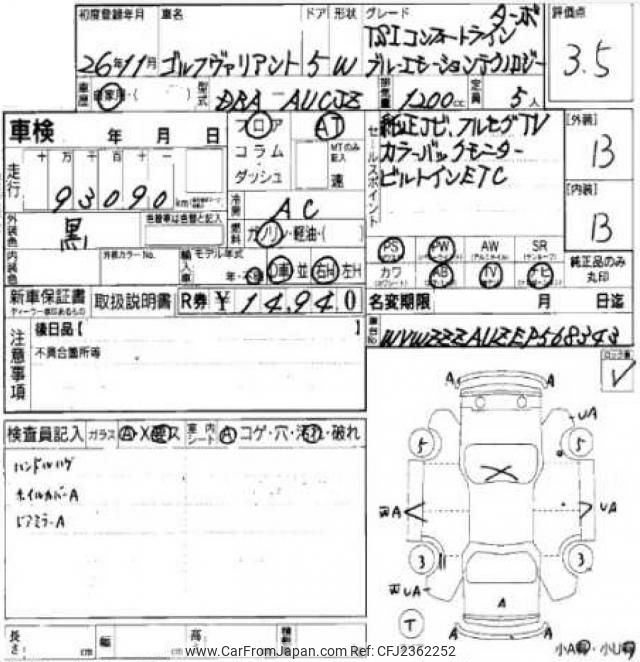 初度登録年月 車名 ドア 形状 グレード 評価点
ターボ
26年11月 ゴルフヴァリアント 5 W TSIコンフォートライン
ブルーエモーションテクノロジー
3.5
車歴 自家用・( ) 型式 DBA-AUCJZ 排気量 1200cc 定員 5人
車検 年 月 日
フロア AT
コラム MTのみ記入
ダッシュ 速
セールスポイント
純正ナビ、フルセグTV
カラーバックモニター
ビルトインETC
[外装]
B
[内装]
B
走行 十 万 千 百 十 一
93090 km
冷房 AC
外装色 黒 色替車は色替と記入
燃料 ガソリン・軽油・( )
内装色 外装カラーNo. 輸入車 モデル年式
年・D車・並 右H 左H
PS PW AW SR
カワ AB TV ナビ
純正品のみ丸印
新車保証書 取扱説明書 R券 ¥14,940
名変期限 月 日迄
車台No WVWZZZAUZEP568343
注意事項
後日品【 】
不具合箇所等
検査員記入 ガラス A・X・要ス 室内シート A コゲ・穴・汚れ・破れ
ハンドルハゲ
ホイルカバーA
ドアミラーA
A A
UA
5 5
A UA
3 3
UA
A
T
A A
長さ cm 幅 cm 高
小A 小U
www.CarFromJapan.com Ref: CFJ2362252